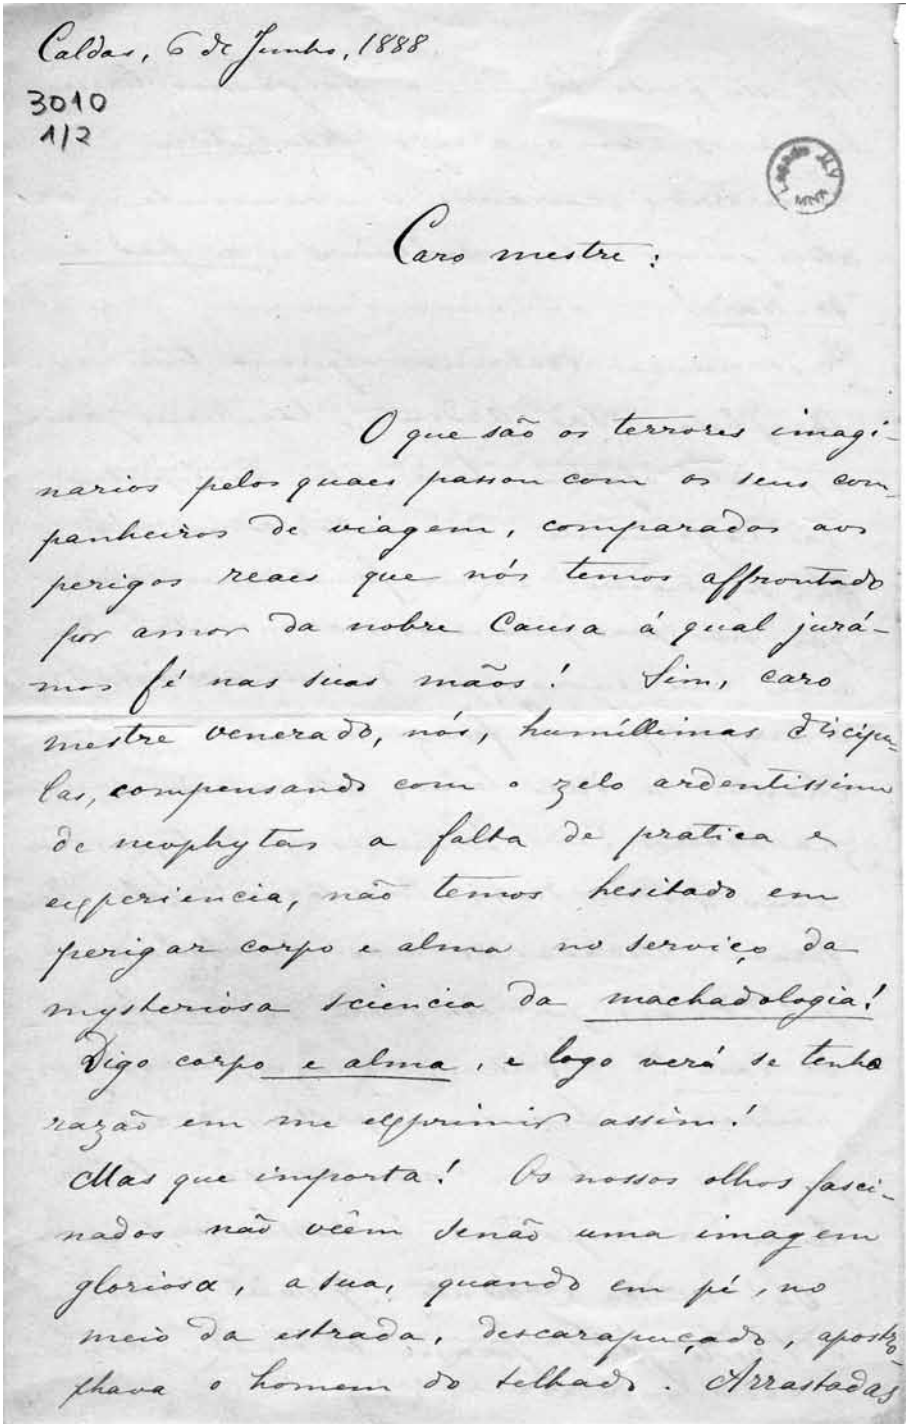 Caldas, 6 de Junho, 1888
3010
1/2
Legado JLV
MNA
Caro mestre:
O que são os terrores imagi-
narios pelos quaes passou com os seus com-
panheiros de viagem, comparados aos
perigos reaes que nós temos affrontado
por amor da nobre Causa á qual jurá-
mos fé nas suas mãos! Sim, caro
mestre venerado, nós, humíllimas discipu-
las, compensando com o zelo ardentissimo
de neophytas a falta de pratica e
experiencia, não temos hesitado em
perigar corpo e alma no serviço da
mysteriosa sciencia da machadologia!
Digo corpo e alma, e logo verá se tenho
razão em me exprimir assim!
Mas que importa! Os nossos olhos fasci-
nados não vêem senão uma imagem
gloriosa, a sua, quando em pé, no
meio da estrada, descarapuçado, apostro-
phava o homem do telhado. Arrastadas